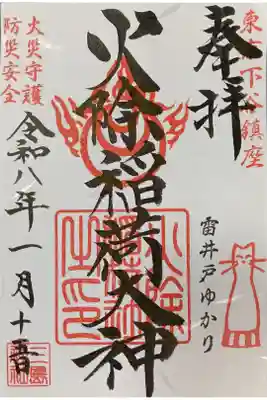 東京下谷鎮座
奉拝
雷井戸ゆかり
火除稲荷大神
火災守護
防災安全
令和八年一月十五日